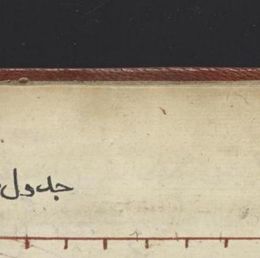 جدول